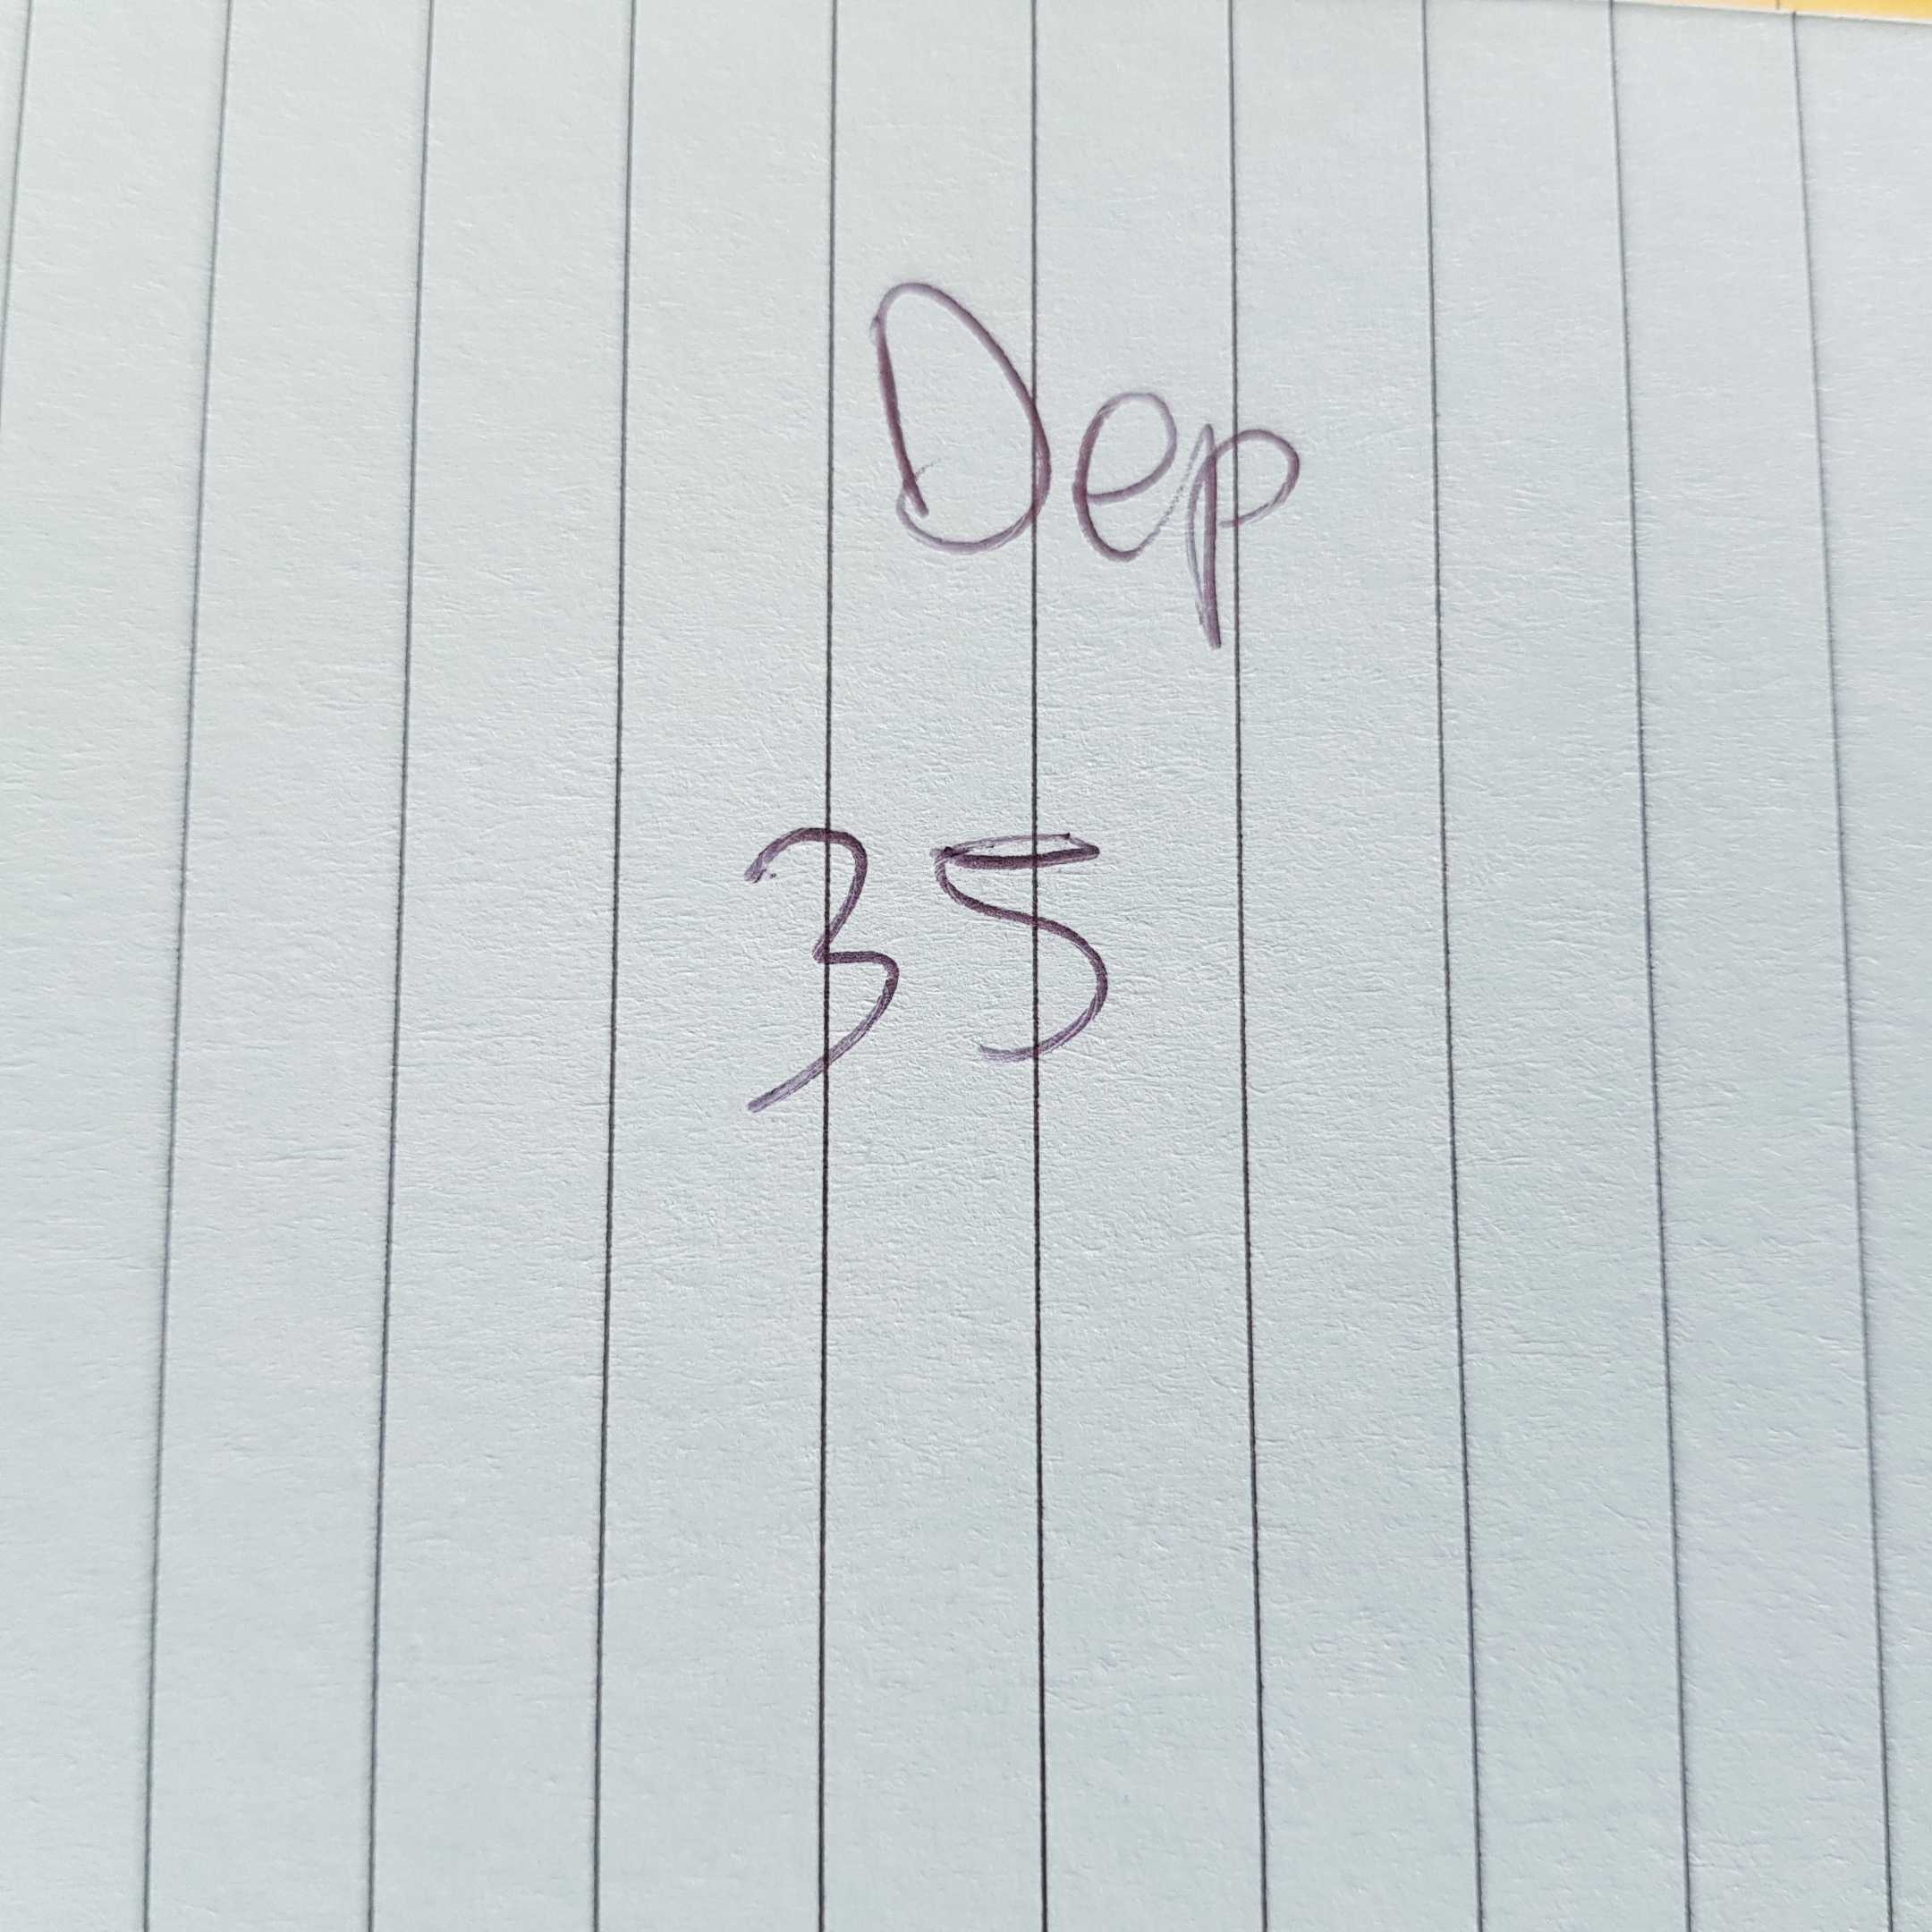 Dep
35